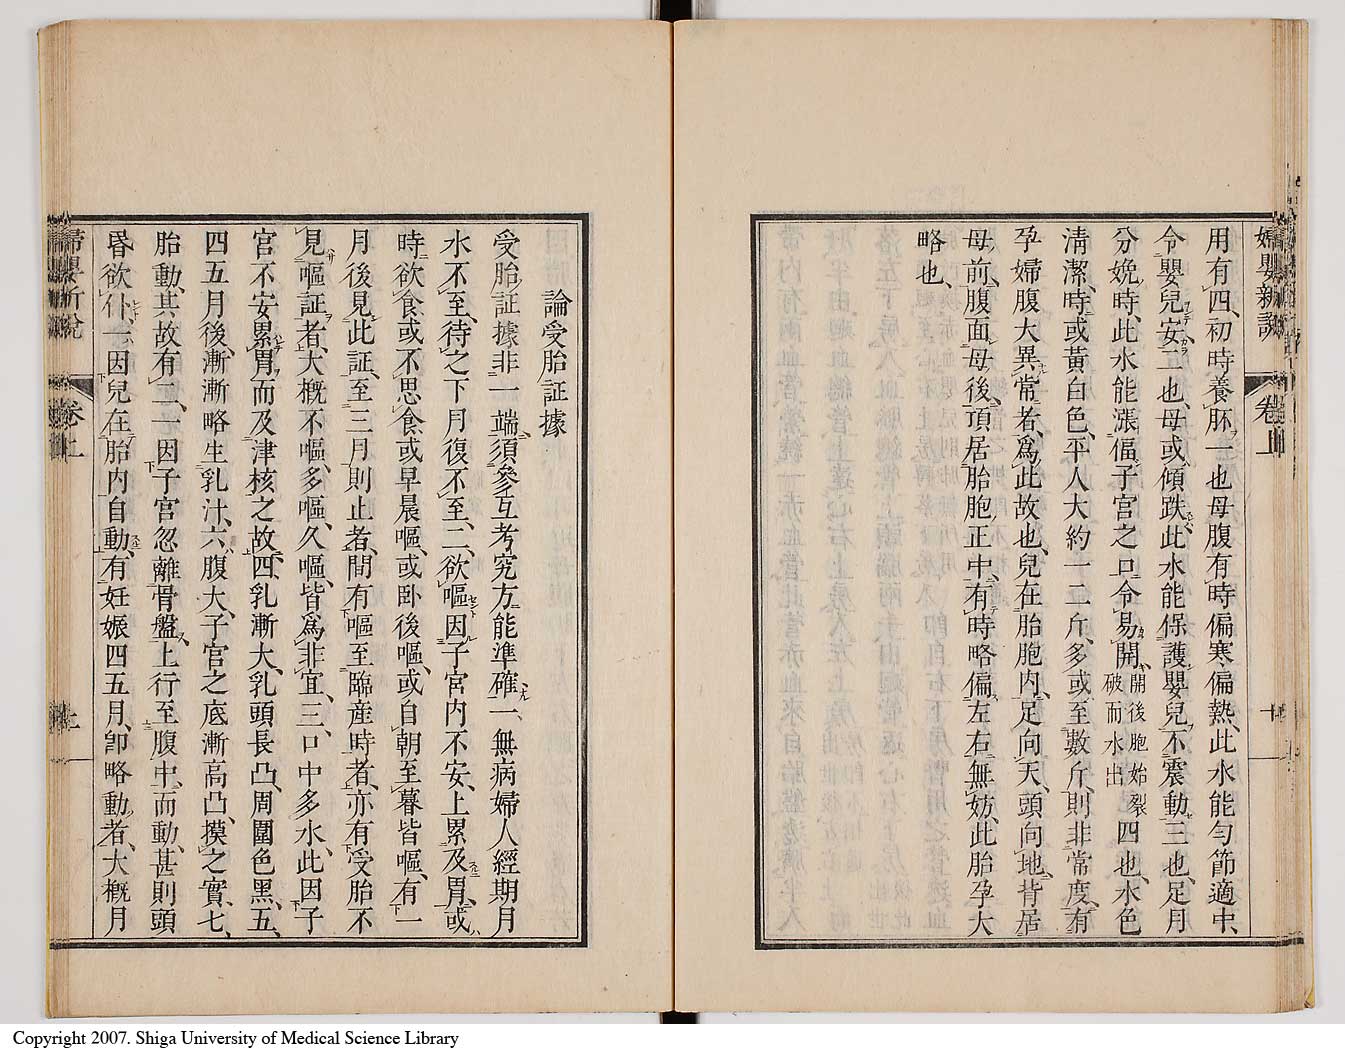 婦嬰新說 卷上
用有四、初時養胚一也、母腹有時偏寒偏熱、此水能勻節適中、
令嬰兒安二也、母或傾跌、此水能保護嬰兒、不震動三也、足月
分娩時、此水能漲傴子宮之口、令易開、開後胞始裂破而水出四也、水色
清潔、時或黃白色、平人大約一二斤、多或至數斤、則非常度、有
孕婦腹大異常者、爲此故也、兒在胎胞內、足向天、頭向地、背居
母前、腹面母後、頂居胎胞正中、有時略偏左右、無妨、此胎孕大
略也、
論受胎証據
受胎証據非一端、須參互考究、方能準確、一、無病婦人經期月
水不至、待之下月復不至、二、欲嘔、因子宮內不安、上累及胃、或
時欲食、或不思食、或早晨嘔、或卧後嘔、或自朝至暮皆嘔、有一
月後見此証、至三月則止者、間有嘔至臨産時者、亦有受胎不
見嘔証者、大概不嘔、多嘔、久嘔、皆爲非宜、三、口中多水、此因子
宮不安、累胃而及津核之故、四、乳漸大、乳頭長凸、周圍色黑、五、
四五月後漸漸略生乳汁、六、腹大、子宮之底漸高凸、摸之實、七、
胎動、其故有二、一因子宮忽離骨盤、上行至腹中、而動、甚則頭
昏欲仆、一因兒在胎內自動、有妊娠四五月、卽略動者、大概月
婦嬰新說 卷上
Copyright 2007. Shiga University of Medical Science Library